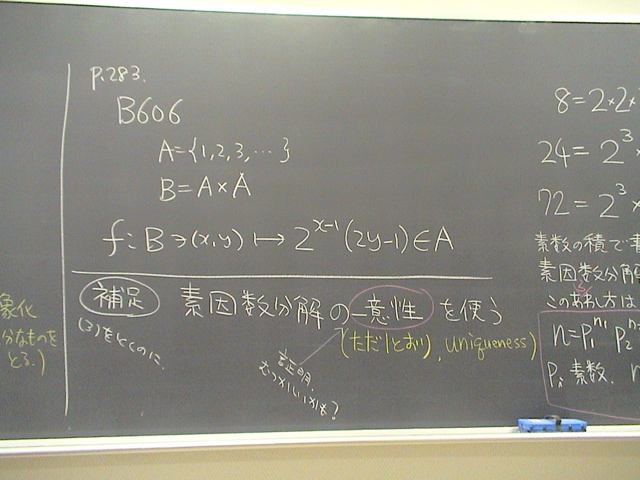 象化
分なものを
とる.)
p.283.
B606
A={1,2,3,…}
B=A×A
f:B∋(x,y)↦2^{x-1}(2y-1)∈A
補足 素因数分解の一意性を使う
(3)をとくのに.
(ただ1とおり, uniqueness)
証明.
むずかしいかも?
8=2×2×
24=2^3×
72=2^3×
素数の積で
素因数分解
この 方は
n=p_1^{n_1} p_2^{n_2}
p_i 素数.